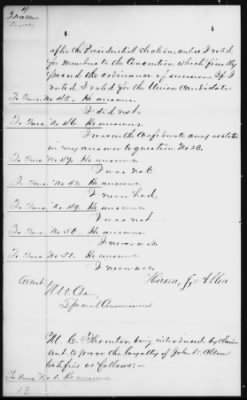 after the Presidential Election and so I voted
for members to the Convention which finally
passed the ordinance of secession if I
voted. I voted for the Union Candidate
To Ques. No 45. He answers.
I did not.
To Ques. No 46. He answers.
I was in the Confederate army as stated
in my answer to question No 28.
To Ques. No 47. He answers.
I was not
To Ques. No 48. He answers
I never had.
To Ques. No 49. He answers.
I was not
To Ques. No 50. He answers
I never was
To Ques. No 51. He answers.
I never was
Hiram J. Allen
Special Commissioner
M. C. Thornton being introduced by Claim
ant to prove the loyalty of John Allen
testifies as follows:—
To Ques No 1. He answers